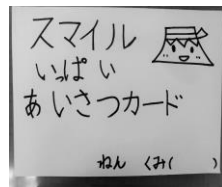 スマイル
いっぱい
あいさつカード
ねん くみ( )